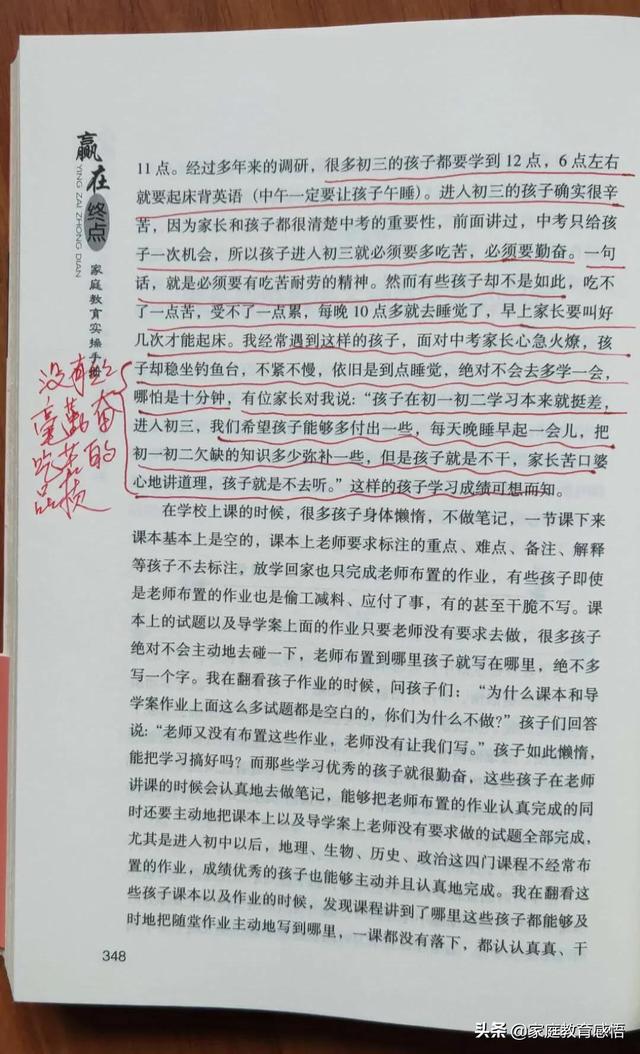 赢在终点
YING ZAI ZHONG DIAN
家庭教育实操手册
11点。经过多年来的调研，很多初三的孩子都要学到12点，6点左右
就要起床背英语（中午一定要让孩子午睡）。进入初三的孩子确实很辛
苦，因为家长和孩子都很清楚中考的重要性，前面讲过，中考只给孩
子一次机会，所以孩子进入初三就必须要多吃苦，必须要勤奋。一句
话，就是必须要有吃苦耐劳的精神。然而有些孩子却不是如此，吃不
了一点苦，受不了一点累，每晚10点多就去睡觉了，早上家长要叫好
几次才能起床。我经常遇到这样的孩子，面对中考家长心急火燎，孩
子却稳坐钓鱼台，不紧不慢，依旧是到点睡觉，绝对不会去多学一会，
哪怕是十分钟，有位家长对我说：“孩子在初一初二学习本来就挺差，
进入初三，我们希望孩子能够多付出一些，每天晚睡早起一会儿，把
初一初二欠缺的知识多少弥补一些，但是孩子就是不干，家长苦口婆
心地讲道理，孩子就是不去听。”这样的孩子学习成绩可想而知。
没有
毫勤奋
吃苦的
品质
在学校上课的时候，很多孩子身体懒惰，不做笔记，一节课下来
课本基本上是空的，课本上老师要求标注的重点、难点、备注、解释
等孩子不去标注，放学回家也只完成老师布置的作业，有些孩子即使
是老师布置的作业也是偷工减料、应付了事，有的甚至干脆不写。课
本上的试题以及导学案上面的作业只要老师没有要求去做，很多孩子
绝对不会主动地去碰一下，老师布置到哪里孩子就写在哪里，绝不多
写一个字。我在翻看孩子作业的时候，问孩子们：“为什么课本和导
学案作业上面这么多试题都是空白的，你们为什么不做？”孩子们回答
说：“老师又没有布置这些作业，老师没有让我们写。”孩子如此懒惰，
能把学习搞好吗？而那些学习优秀的孩子就很勤奋，这些孩子在老师
讲课的时候会认真地去做笔记，能够把老师布置的作业认真完成的同
时还要主动地把课本上以及导学案上老师没有要求做的试题全部完成，
尤其是进入初中以后，地理、生物、历史、政治这四门课程不经常布
置的作业，成绩优秀的孩子也能够主动并且认真地完成。我在翻看这
些孩子课本以及作业的时候，发现课程讲到了哪里这些孩子都能够及
时地把随堂作业主动地写到哪里，一课都没有落下，都认认真真、干
348
头条 @家庭教育感悟